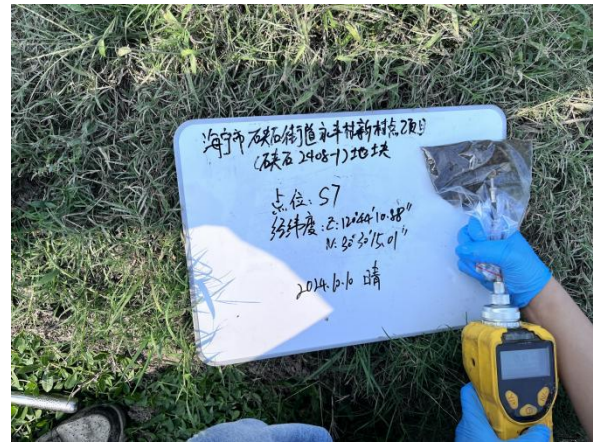 海宁市硖石街道永丰村新村点项目
(硖石2408-1)地块
点位:S7
经纬度:E:120°44'10.88"
N:30°30'15.01"
2024.10.10 晴